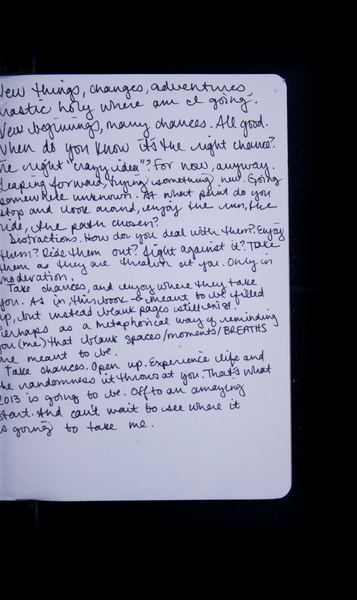 New things, changes, adventures,
holy where am I going.
New beginnings, many chances. All good.
When do you know it's the right chance?
The right "crazy idea"? For now, anyway.
Leaping forward, trying something new. Going
somewhere unknown. At what point do you
stop and look around, enjoy the run, the
ride, the path chosen?
Distractions. How do you deal with them? Enjoy
them? Ride them out? Fight against it? Take
them as they are thrown at you. Only in
moderation.
Take chances, and enjoy where they take
you. As in this book - meant to be filled
up, but instead blank pages still exist.
Perhaps as a metaphorical way of reminding
you (me) that blank spaces/moments/BREATHS
are meant to be.
Take chances. Open up. Experience life and
the randomness it throws at you. That's what
2013 is going to be. Off to an amazing
start. And can't wait to see where it
is going to take me.